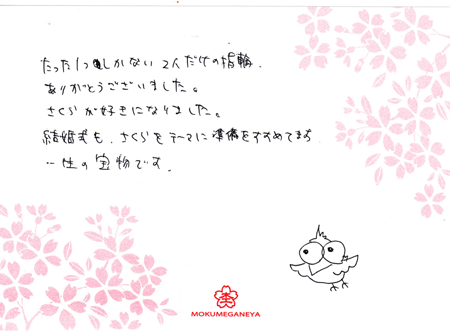 たった1つしかない2人だけの指輪.
ありがとうございました。
さくらが好きになりました。
結婚式も、さくらをテーマに準備をすすめてます
一生の宝物です.
MOKUMEGANEYA